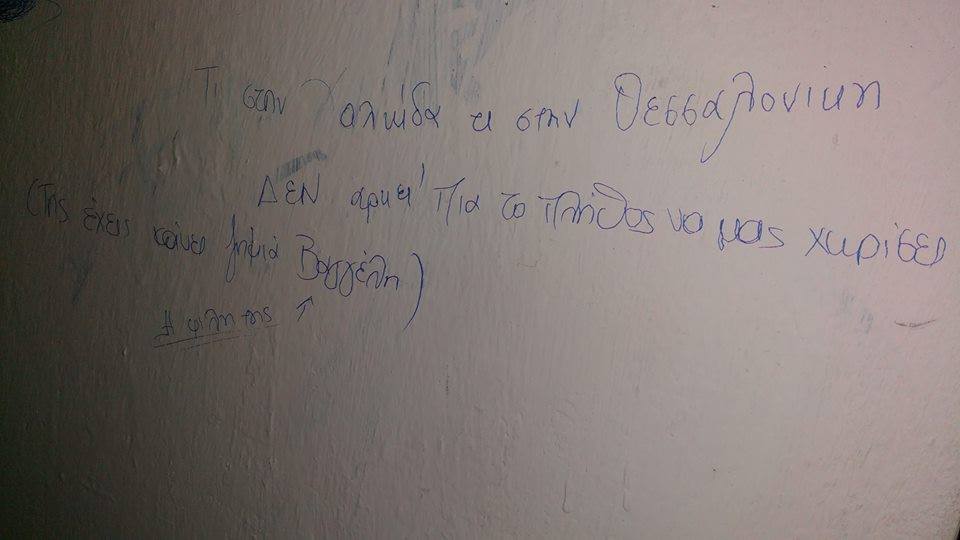 Τι στην αλάνα τι στην Θεσσαλονικη
ΔΕΝ αρκεί πια το πλήθος να μας χωρίσει
(Της έχεις κάνει ζημιά Βαγγέλη)
Η φιλη της